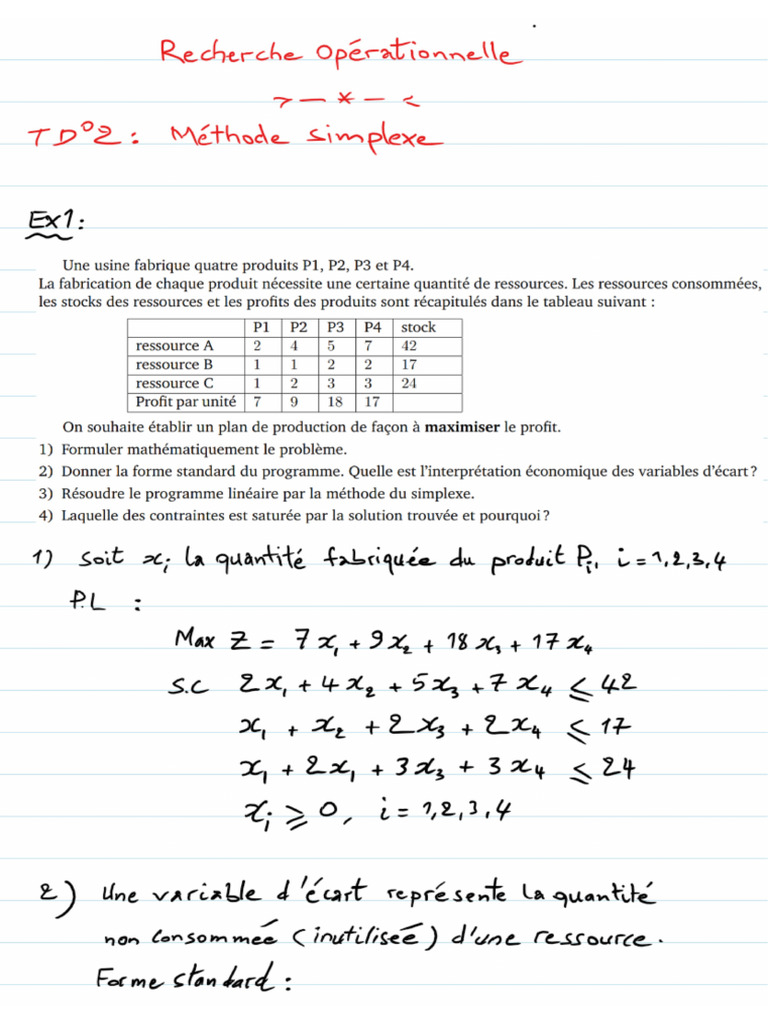 Recherche Opérationnelle
> — * — <
TD°2 : Méthode simplexe
Ex1 :
Une usine fabrique quatre produits P1, P2, P3 et P4.
La fabrication de chaque produit nécessite une certaine quantité de ressources. Les ressources consommées,
les stocks des ressources et les profits des produits sont récapitulés dans le tableau suivant :
P1 P2 P3 P4 stock
ressource A 2 4 5 7 42
ressource B 1 1 2 2 17
ressource C 1 2 3 3 24
Profit par unité 7 9 18 17
On souhaite établir un plan de production de façon à maximiser le profit.
1) Formuler mathématiquement le problème.
2) Donner la forme standard du programme. Quelle est l'interprétation économique des variables d'écart ?
3) Résoudre le programme linéaire par la méthode du simplexe.
4) Laquelle des contraintes est saturée par la solution trouvée et pourquoi ?
1) Soit xᵢ la quantité fabriquée du produit Pᵢ, i = 1,2,3,4
P.L :
Max Z = 7x₁ + 9x₂ + 18x₃ + 17x₄
S.C 2x₁ + 4x₂ + 5x₃ + 7x₄ ⩽ 42
x₁ + x₂ + 2x₃ + 2x₄ ⩽ 17
x₁ + 2x₁ + 3x₃ + 3x₄ ⩽ 24
xᵢ ⩾ 0, i = 1,2,3,4
2) Une variable d'écart représente la quantité
non consommée (inutilisée) d'une ressource.
Forme standard :